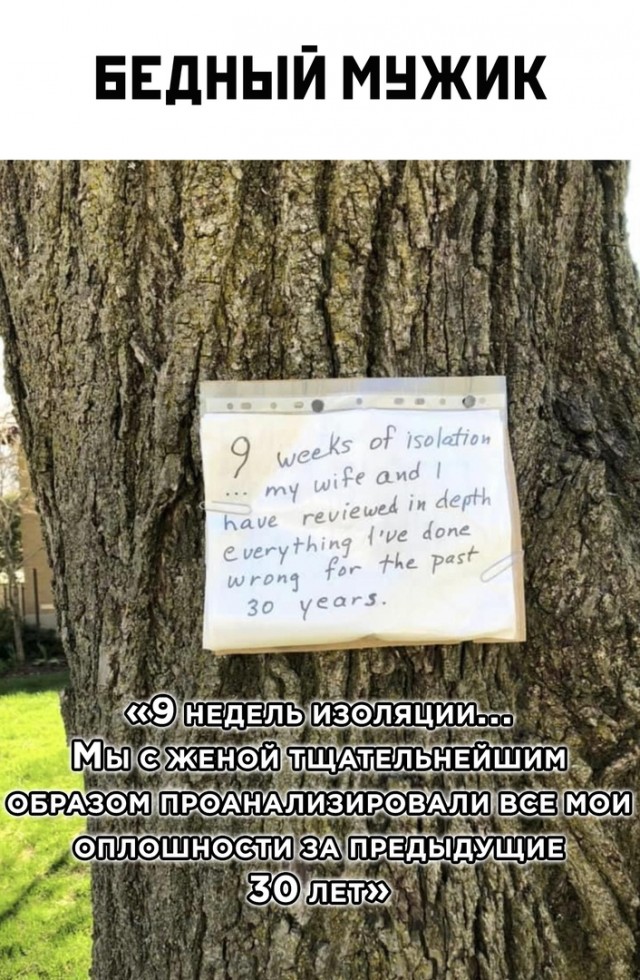 БЕДНЫЙ МУЖИК
9 weeks of isolation
... my wife and I
have reviewed in depth
everything I've done
wrong for the past
30 years.
«9 недель изоляции...
Мы с женой тщательнейшим
образом проанализировали все мои
оплошности за предыдущие
30 лет»